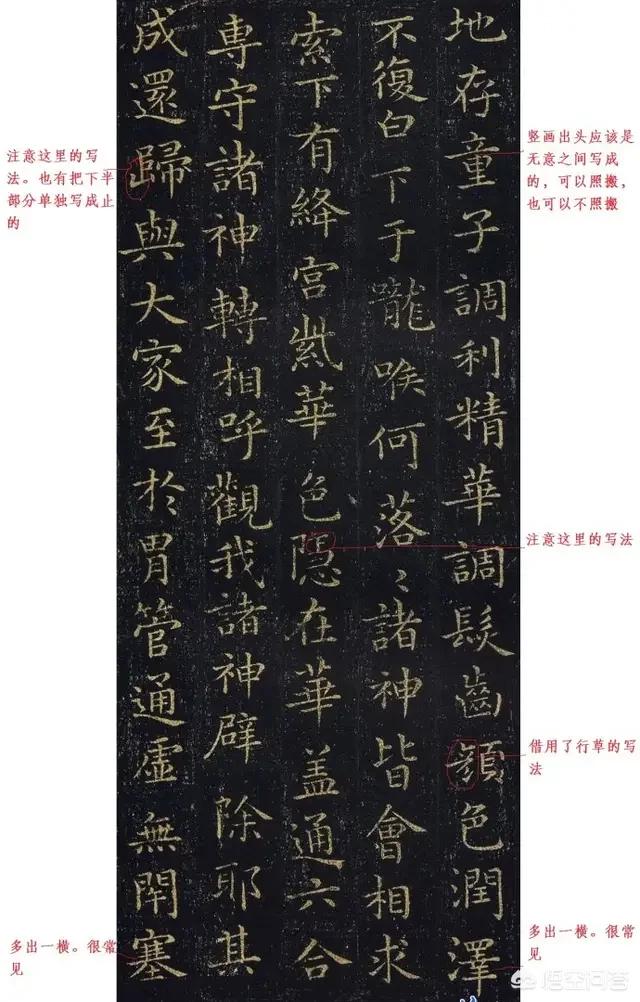 地存童子調利精華調髮齒顏色潤澤
不復白下于嚨喉何落〻諸神皆會相求
索下有絳宮紫華色隱在華盖通六合
專守諸神轉相呼觀我諸神辟除耶其
成還歸與大家至於胃管通虛無閇塞
竖画出头应该是
无意之间写成
的，可以照搬，
也可以不照搬
注意这里的写法
借用了行草的写
法
多出一横。很常
见
注意这里的写
法。也有把下半
部分单独写成止
的
多出一横。很常
见
悟空问答